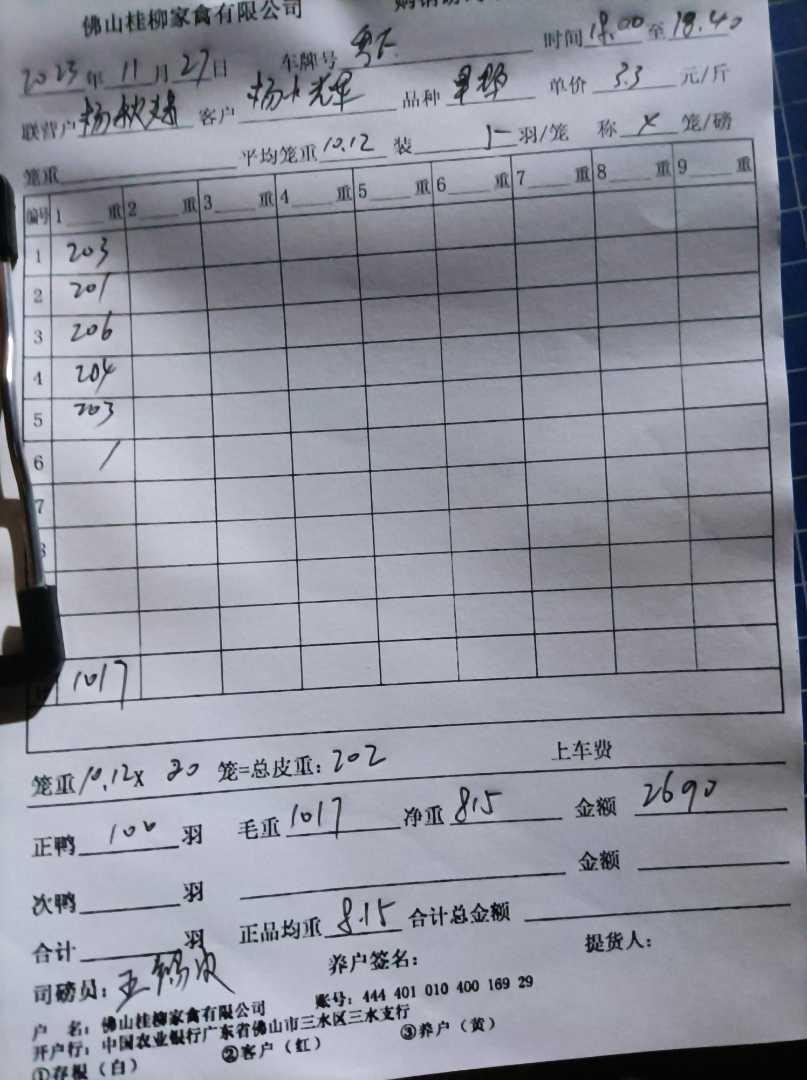 佛山桂柳家禽有限公司
2023年11月27日 车牌号 时间18.00至18.40
联营户 杨秋 客户 杨 品种 单价3.3元/斤
笼重 平均笼重10.12 装5羽/笼 称4笼/磅
编号 1 重 2 重 3 重 4 重 5 重 6 重 7 重 8 重 9 重
1 203
2 201
3 206
4 204
5 203
6 /
7
1017
笼重10.12x 20 笼=总皮重:202 上车费
正鸭100羽 毛重1017 净重815 金额2690
次鸭 羽 金额
合计 羽 正品均重8.15 合计总金额
司磅员:王 养户签名: 提货人:
户 名:佛山桂柳家禽有限公司 账号:444 401 010 400 169 29
开户行:中国农业银行广东省佛山市三水区三水支行
①存根(白) ②客户(红) ③养户(黄)